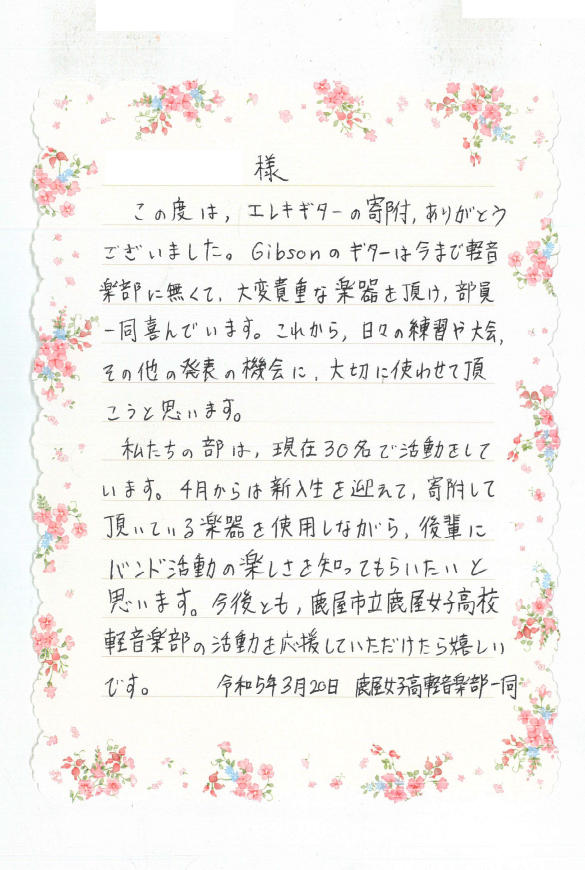 様
この度は，エレキギターの寄附，ありがとう
ございました。Gibsonのギターは今まで軽音
楽部に無くて，大変貴重な楽器を頂け，部員
一同喜んでいます。これから，日々の練習や大会，
その他の発表の機会に，大切に使わせて頂
こうと思います。
私たちの部は，現在30名で活動をして
います。4月からは新入生を迎えて，寄附して
頂いている楽器を使用しながら，後輩に
バンド活動の楽しさを知ってもらいたいと
思います。今後とも，鹿屋市立鹿屋女子高校
軽音楽部の活動を応援していただけたら嬉しい
です。 令和5年3月20日 鹿屋女子高軽音楽部一同